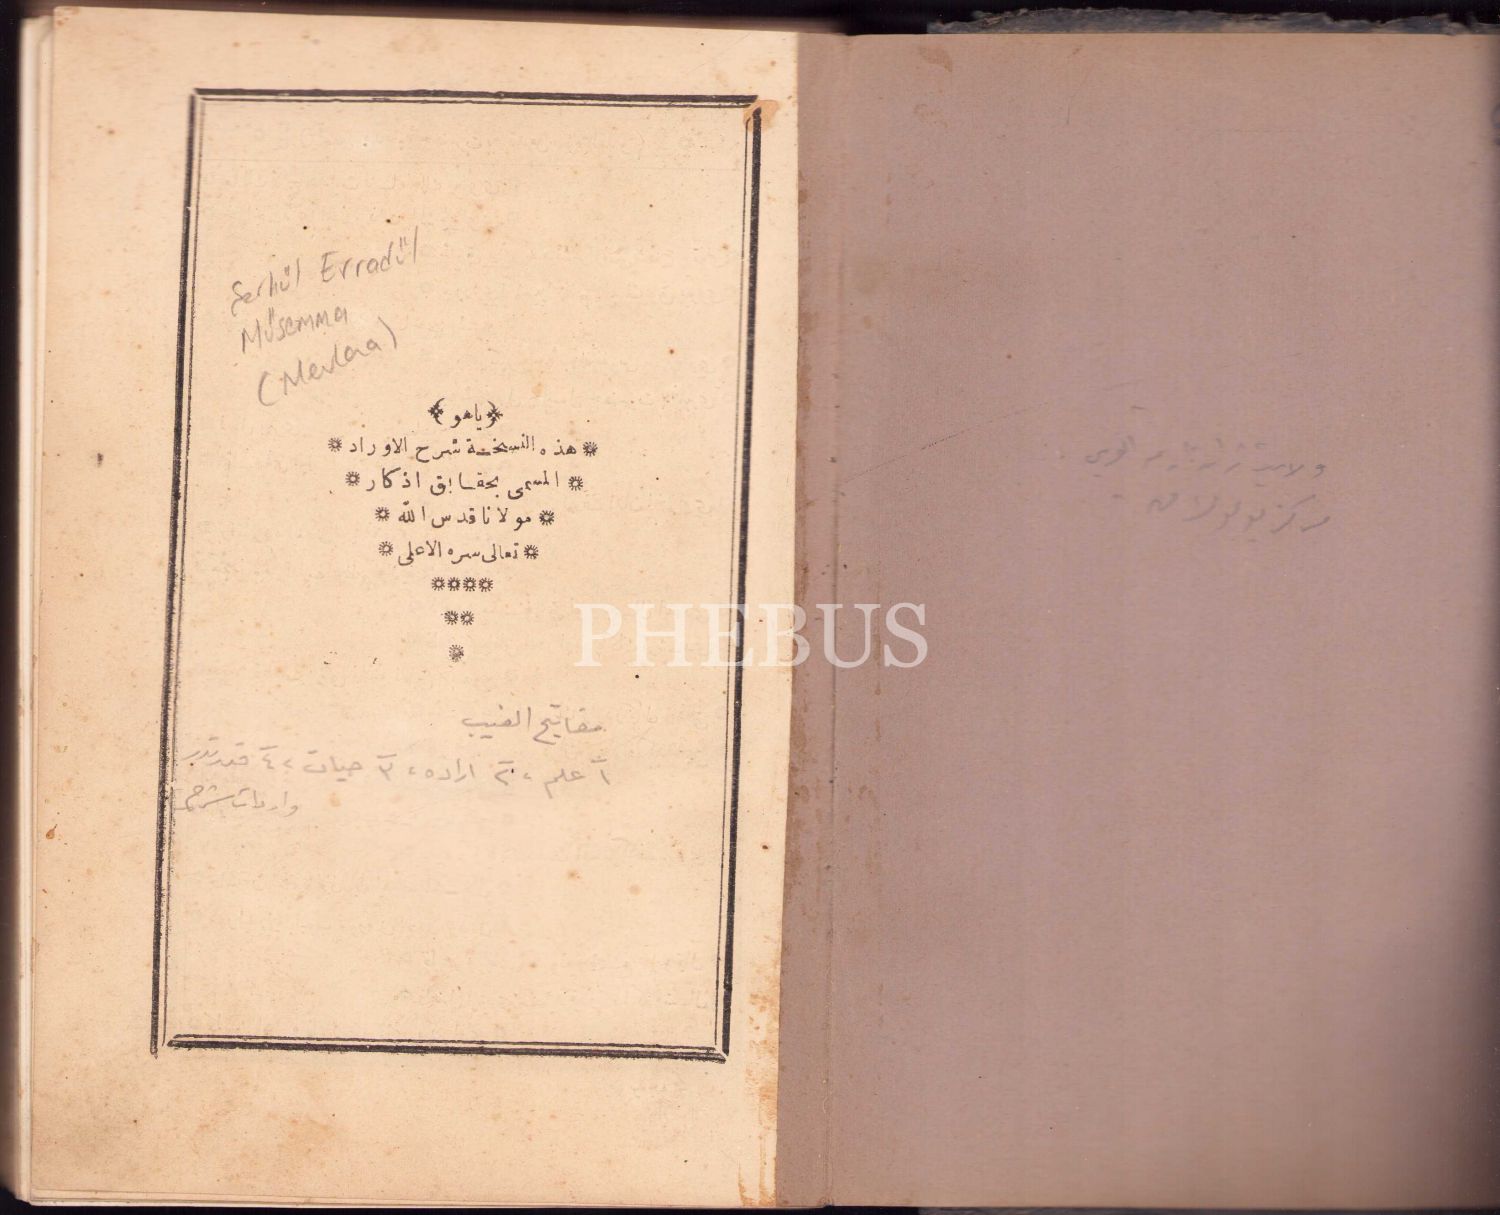 Şerhül Erradül
Müsemma
(Mevlana)
﴿ياهو﴾
هذه النسخة شرح الاوراد
المسمى بحقايق اذكار
مولانا قدس الله
تعالى سره الاعلى
PHEBUS
مفاتيح الغيب
١ علم ، ٢ اراده ، ٣ حيات ، ٤ قدرتدر
واردات شرحی